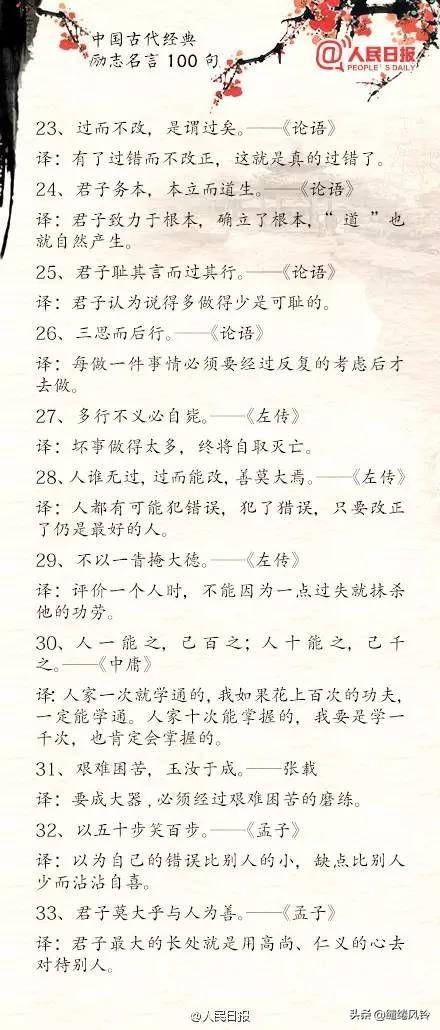 中国古代经典
励志名言100句
@人民日报
PEOPLE'S DAILY
23、过而不改，是谓过矣。——《论语》
译：有了过错而不改正，这就是真的过错了。
24、君子务本，本立而道生。——《论语》
译：君子致力于根本，确立了根本，“道”也
就自然产生。
25、君子耻其言而过其行。——《论语》
译：君子认为说得多做得少是可耻的。
26、三思而后行。——《论语》
译：每做一件事情必须要经过反复的考虑后才
去做。
27、多行不义必自毙。——《左传》
译：坏事做得太多，终将自取灭亡。
28、人谁无过，过而能改，善莫大焉。——《左传》
译：人都有可能犯错误，犯了猎误，只要改正
了仍是最好的人。
29、不以一眚掩大德。——《左传》
译：评价一个人时，不能因为一点过失就抹杀
他的功劳。
30、人一能之，己百之；人十能之，己千
之。——《中庸》
译：人家一次就学通的，我如果花上百次的功夫，
一定能学通。人家十次能掌握的，我要是学一
千次，也肯定会掌握的。
31、艰难困苦，玉汝于成。——张载
译：要成大器，必须经过艰难困苦的磨练。
32、以五十步笑百步。——《孟子》
译：以为自己的错误比别人的小，缺点比别人
少而沾沾自喜。
33、君子莫大乎与人为善。——《孟子》
译：君子最大的长处就是用高尚、仁义的心去
对待别人。
@人民日报
头条@缠绻风铃